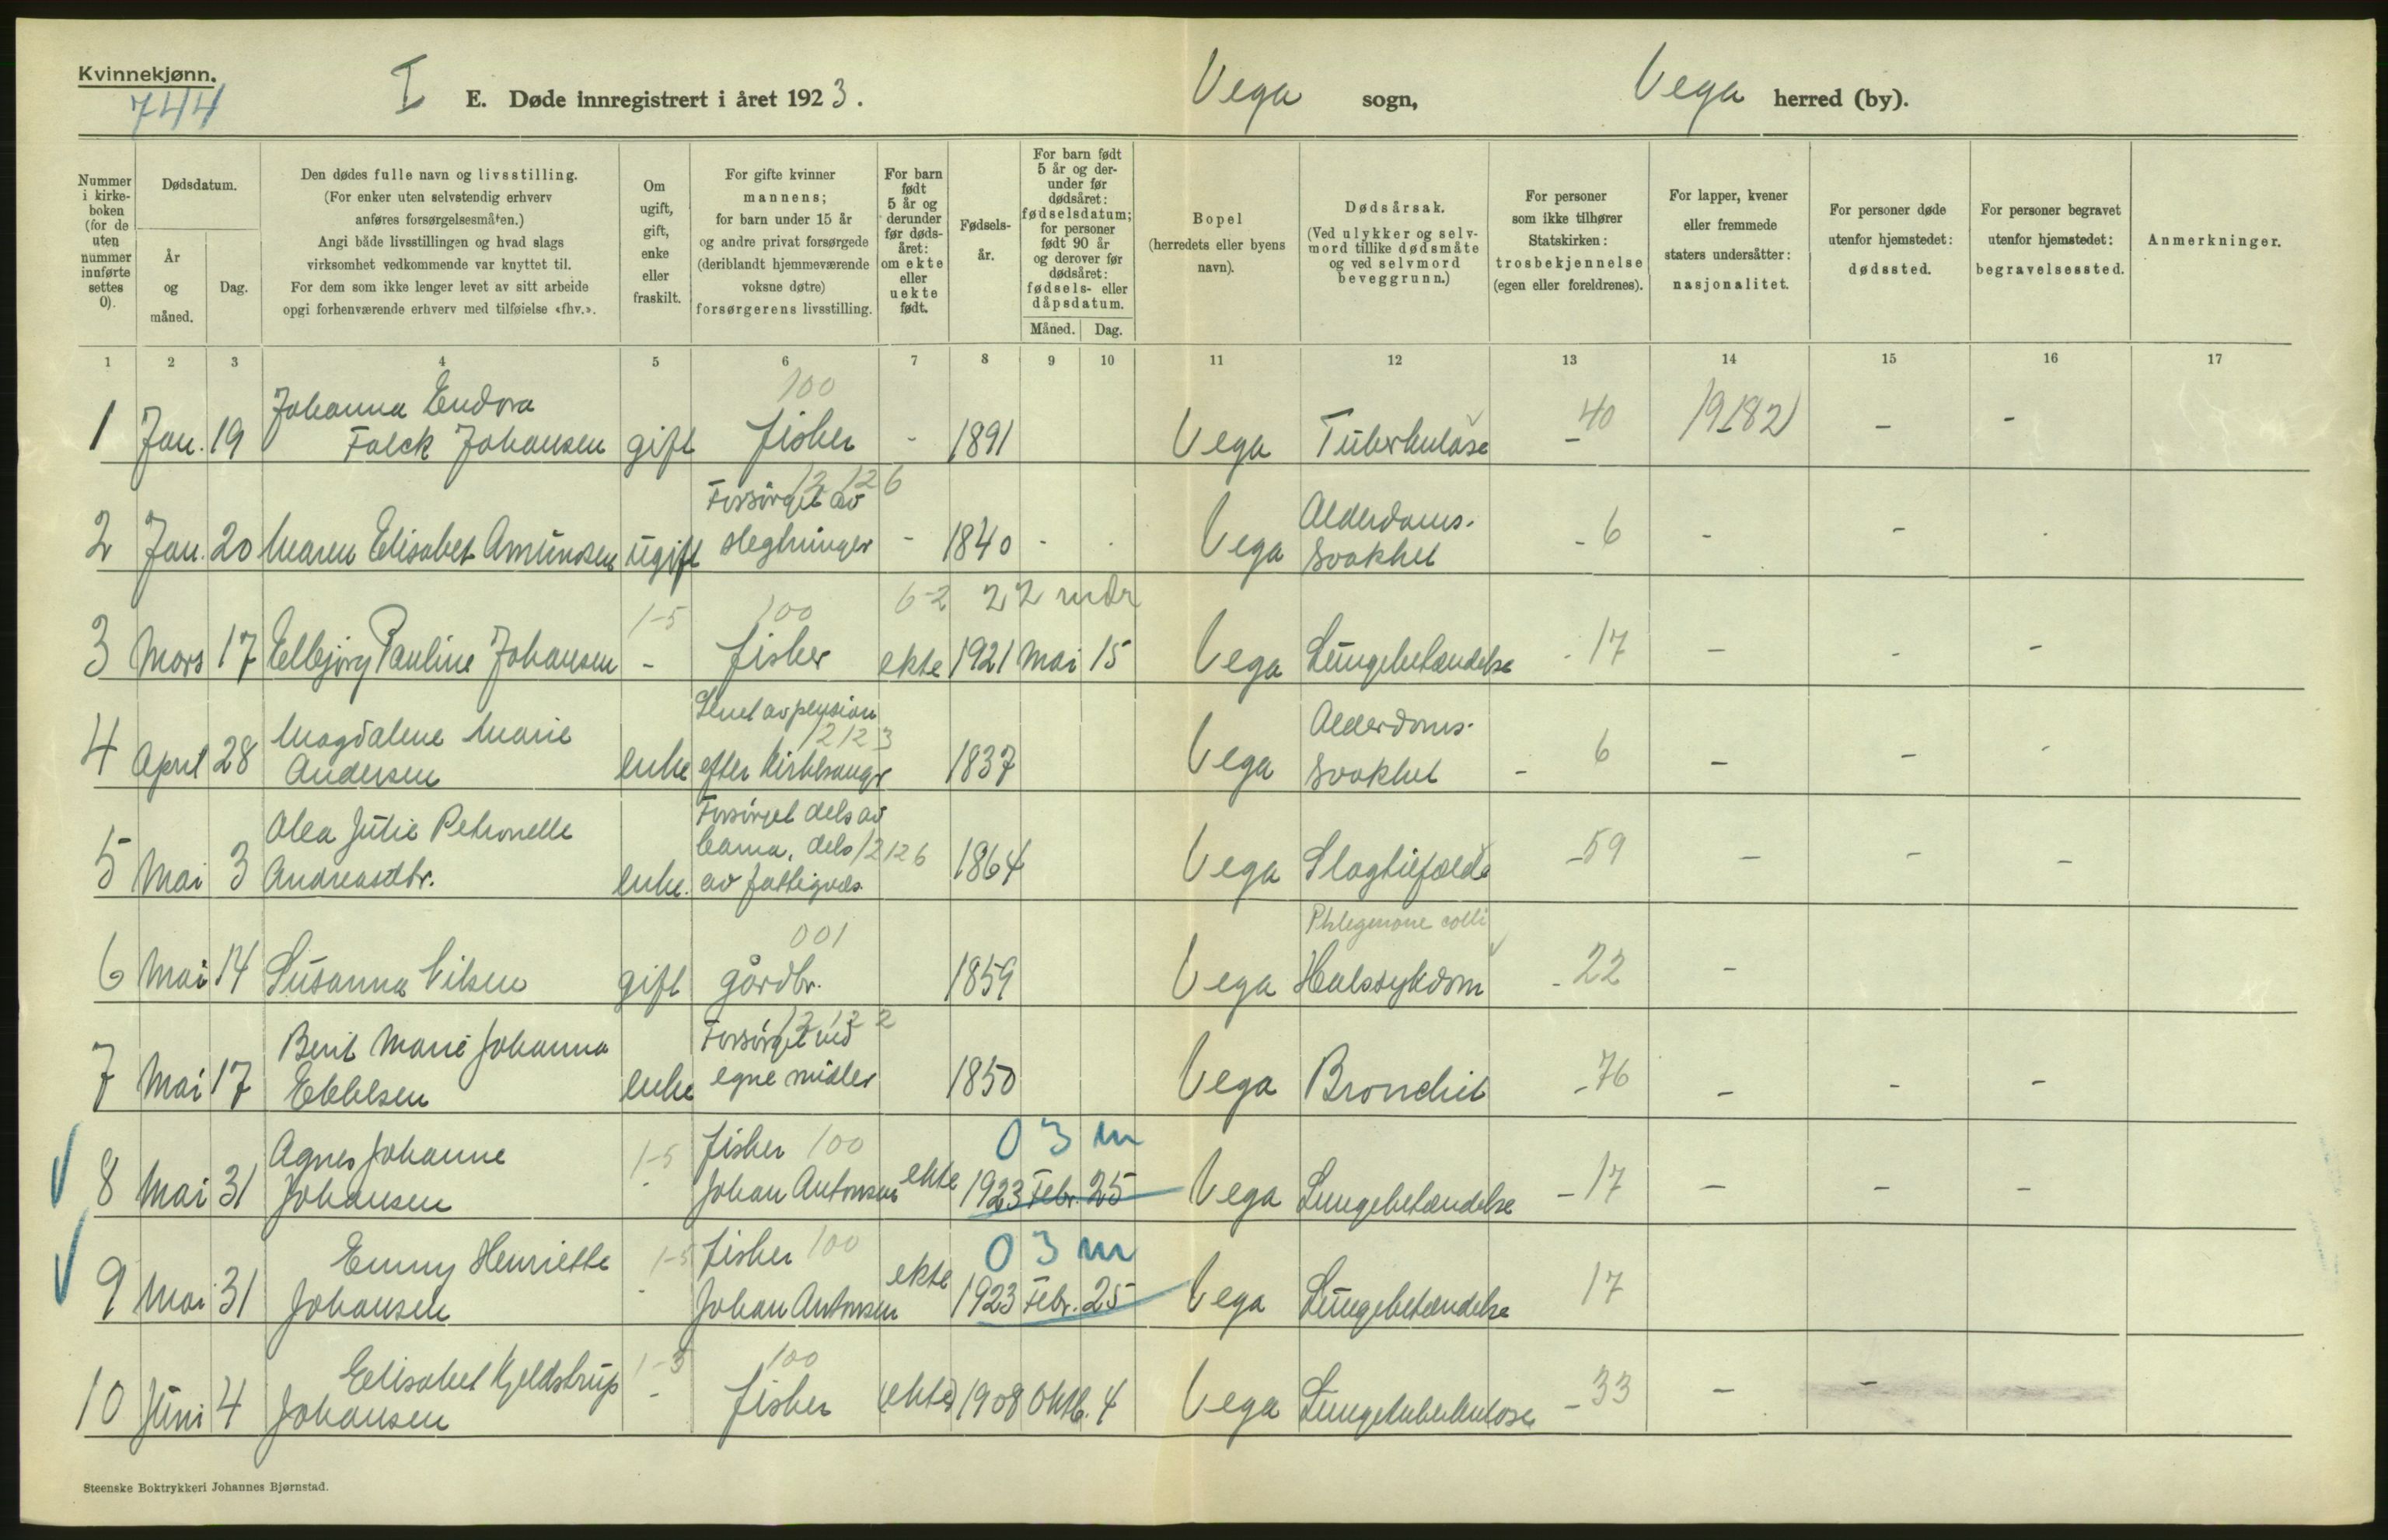 Kvinnekjønn.
744
I E. Døde innregistrert i året 1923. Vega sogn, Vega herred (by).
Nummer i kirke-boken (for de uten nummer innførte settes 0).
Dødsdatum.
År og måned.
Dag.
Den dødes fulle navn og livsstilling.
(For enker uten selvstendig erhverv
anføres forsørgelsesmåten.)
Angi både livsstillingen og hvad slags
virksomhet vedkommende var knyttet til.
For dem som ikke lenger levet av sitt arbeide
opgi forhenværende erhverv med tilføielse «fhv.».
Om ugift, gift, enke eller fraskilt.
For gifte kvinner
mannens;
for barn under 15 år
og andre privat forsørgede
(deriblandt hjemmeværende
voksne døtre)
forsørgerens livsstilling.
For barn født 5 år og derunder før døds-året: om ekte eller uekte født.
Fødsels-år.
For barn født 5 år og der-under før dødsåret: fødselsdatum; for personer født 90 år og derover før dødsåret: fødsels- eller dåpsdatum.
Måned. Dag.
Bopel
(herredets eller byens
navn).
Dødsårsak.
(Ved ulykker og selv-
mord tillike dødsmåte
og ved selvmord
beveggrunn.)
For personer
som ikke tilhører
Statskirken:
trosbekjennelse
(egen eller foreldrenes).
For lapper, kvener
eller fremmede
staters undersåtter:
nasjonalitet.
For personer døde
utenfor hjemstedet:
dødssted.
For personer begravet
utenfor hjemstedet:
begravelsessted.
Anmerkninger.
1 2 3 4 5 6 7 8 9 10 11 12 13 14 15 16 17
100
Johanna Endora
1 Jan. 19 Falck Johansen gift fisker - 1891 Vega Tuberkulose - 40 19182) - -
12 12 6
Forsørget av Alderdoms-
2 Jan. 20 Maren Elisabet Amundsen ugift slegtninger - 1840 - - Vega svakhet - 6 - - -
1-5 100 6-2 22 mdr
3 Mars 17 Ellbjørg Pauline Johansen - fisker ekte 1921 Mai 15 Vega Lungebetændelse - 17 - - -
Levet av pension
12 12 3
Magdalene Marie Alderdoms-
4 April 28 Andersen enke efter kirkesanger 1837 Vega svakhet - 6 - - -
Forsørget dels av
Olea Julie Petronelle barna, dels 12 12 6
5 Mai 3 Andreasdtr. enke. av fattigvæs. 1864 Vega Slagtilfælde - 59 - - -
001 Phlegmone colli
6 Mai 14 Susanna Nilsen gift gårdbr. 1859 Vega Halssykdom - 22 -
12 12 2
Berit Marie Johanna Forsørget ved
7 Mai 17 Ebbesen enke egne midler 1850 Vega Bronchit - 76 - - -
Agnes Johanne 1-5 fisker 100 0 3 m
8 Mai 31 Johansen - Johan Antonsen ekte 1923 Febr. 25 Vega Lungebetændelse - 17 - - -
Emmy Henriette 1-5 fisker 100 0 3 m
9 Mai 31 Johansen - Johan Antonsen ekte 1923 Febr. 25 Vega Lungebetændelse 17
Elisabet Kjeldstrup 1-3 100
10 Juni 4 Johansen - fisker (ekte) 1908 Oktb. 4 Vega Lungetuberkulose - 33 - -
Steenske Boktrykkeri Johannes Bjørnstad.